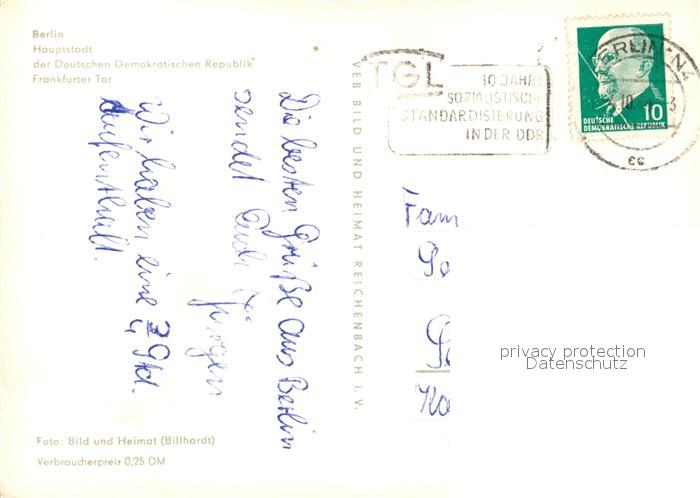 Berlin
Hauptstadt
der Deutschen Demokratischen Republik
Frankfurter Tor
Die besten Grüße aus Berlin
sendet Euch
Jürgen
Wir haben eine 2 Std.
Aufenthalt.
Foto: Bild und Heimat (Billhardt)
Verbraucherpreis 0,25 DM
VEB BILD UND HEIMAT REICHENBACH I. V.
TGL
10 JAHRE
SOZIALISTISCHE
STANDARDISIERUNG
IN DER DDR
BERLIN N4
10
DEUTSCHE
DEMOKRATISCHE REPUBLIK
cc
Fam
privacy protection
Datenschutz